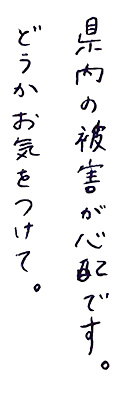 県内の被害が心配です。
どうかお気をつけて。